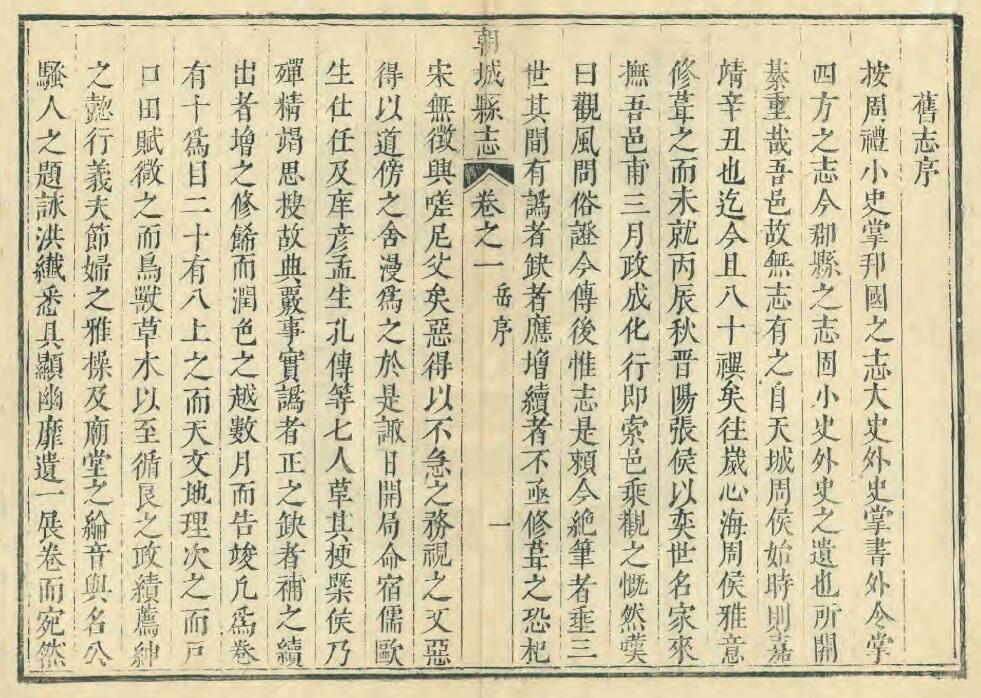 舊志序
按周禮小史掌邦國之志大史外史掌書外令掌
四方之志今郡縣之志固小史外史之遺也所關
綦重哉吾邑故無志有之自天城周侯始時則嘉
靖辛丑也迄今且八十禩矣往歲心海周侯雅意
修葺之而未就丙辰秋晋陽張侯以奕世名家來
撫吾邑甫三月政成化行即索邑乘觀之慨然嘆
曰觀風問俗證今傳後惟志是賴今絶筆者垂三
世其間有譌者缺者應增續者不亟修葺之恐杞
朝城縣志 卷之一 岳序 一
宋無徵興嗟尼父矣惡得以不急之務視之又惡
得以道傍之舍漫爲之於是諏日開局命宿儒歐
生仕任及庠彦孟生孔傳等七人草其梗槩侯乃
殫精竭思搜故典覈事實譌者正之缺者補之續
出者增之修餙而潤色之越數月而告竣凡爲卷
有十爲目二十有八上之而天文地理次之而戸
口田賦微之而鳥獸草木以至循良之政績薦紳
之懿行義夫節婦之雅操及廟堂之綸音與名公
騷人之題詠洪纎悉具顯幽靡遺一展卷而宛然